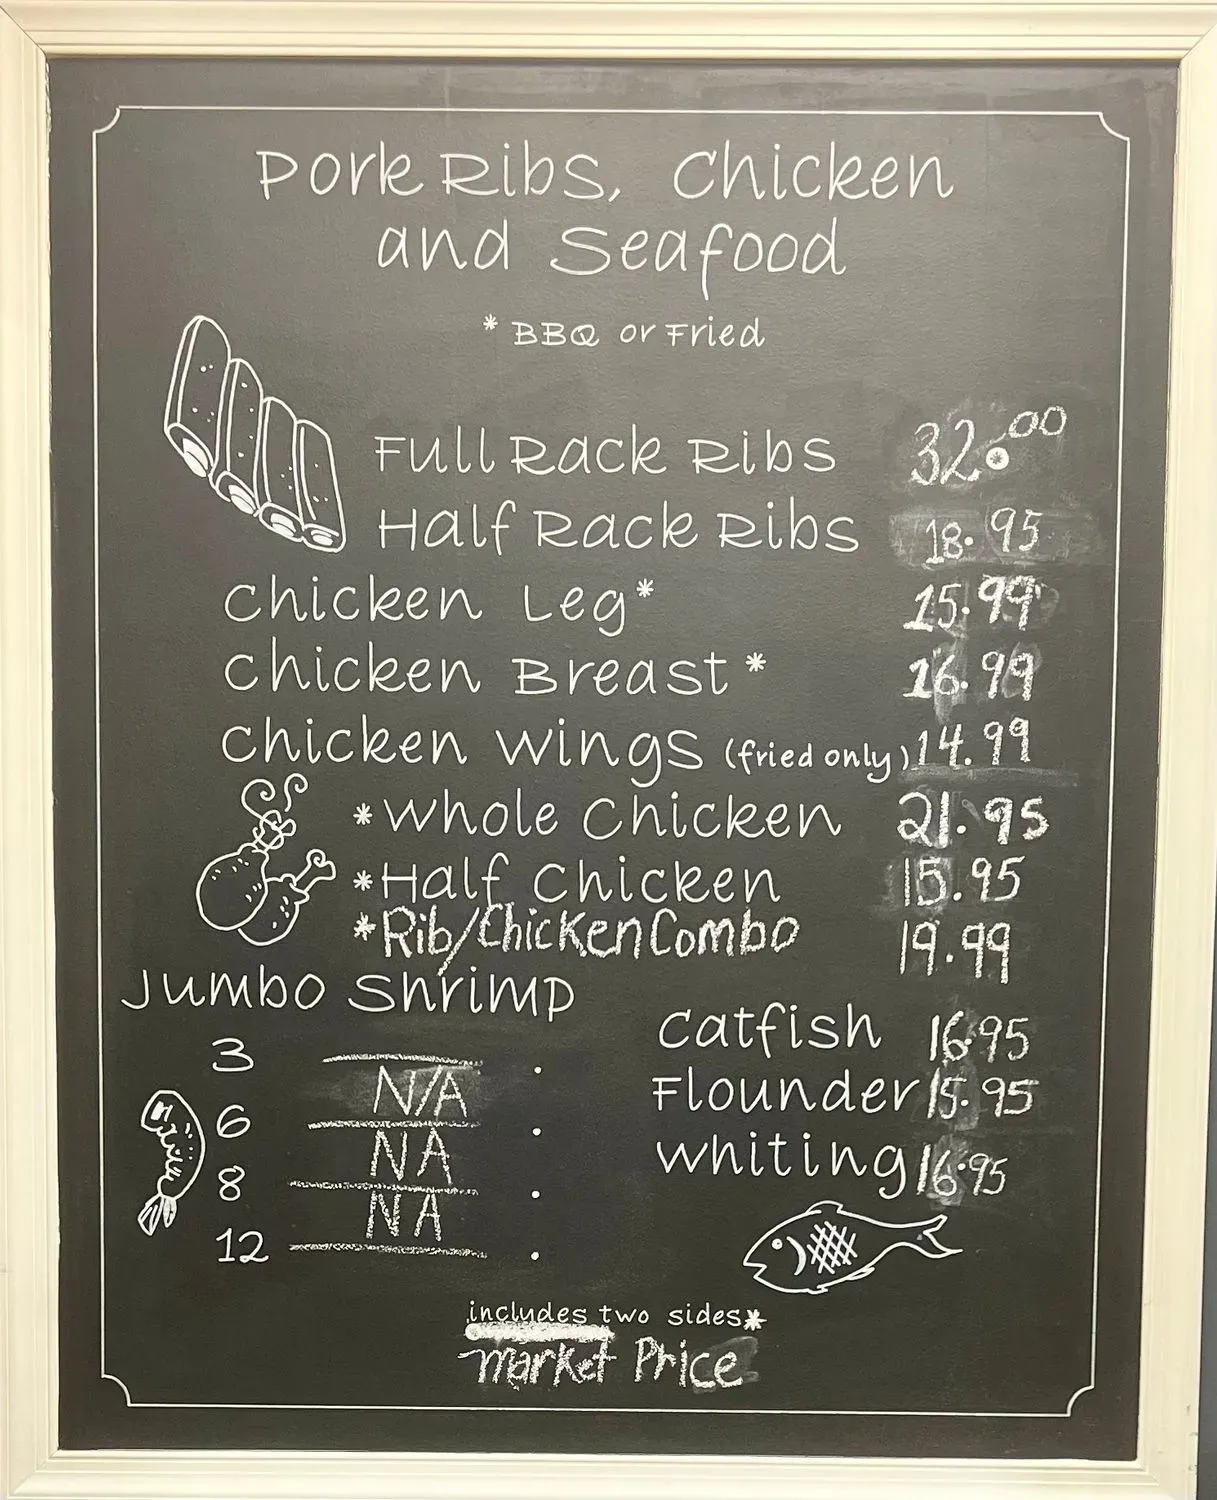 Pork Ribs, Chicken
and Seafood
* BBQ or Fried
Full Rack Ribs 32.00
Half Rack Ribs 18.95
Chicken Leg* 15.99
Chicken Breast* 16.99
Chicken Wings (fried only) 14.99
*Whole Chicken 21.95
*Half Chicken 15.95
*Rib/Chicken Combo 19.99
Jumbo Shrimp
3
N/A
6
NA
8
NA
12
Catfish 16.95
Flounder 15.95
Whiting 16.95
includes two sides*
Market Price